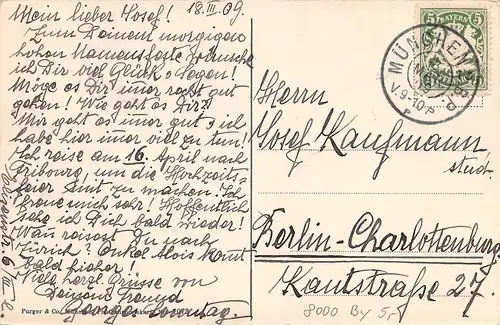 Mein lieber Josef! 18.III.09.
Zum Deinem morgigen
hohen Namensfeste wünsche
ich Dir viel Glück & Segen!
Möge es Dir im̄er recht gut
gehen! Wie geht es Dir?
Mir geht es im̄er gut & ich
habe hier im̄er viel zu tun!
Ich reise am 16. April nach
Fribourg, um die Hochzeits-
feier mit zu machen. Ich
freue mich sehr! Hoffentlich
sehe ich Dich bald wieder!
Wann reisest Du nach
Zürich? Onkel Alois kom̄t
bald hieher!
Viele herzl. Grüsse von
Deinem Freund
Sonntag.
Purger & Co., München
BAYERN
5
5
MÜNCHEN
V.9-10
Herrn
Josef Kaufmann
stud.
Berlin-Charlottenburg
Kantstraße 27.
8000 By 5,-